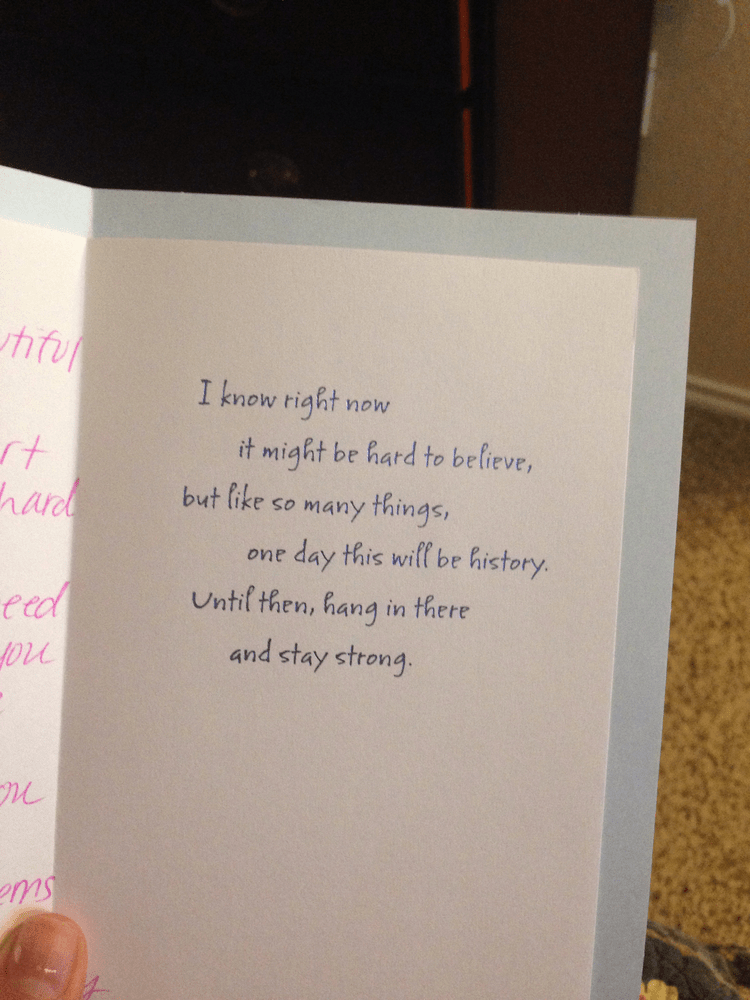 hard
you
I know right now
it might be hard to believe,
but like so many things,
one day this will be history.
Until then, hang in there
and stay strong.